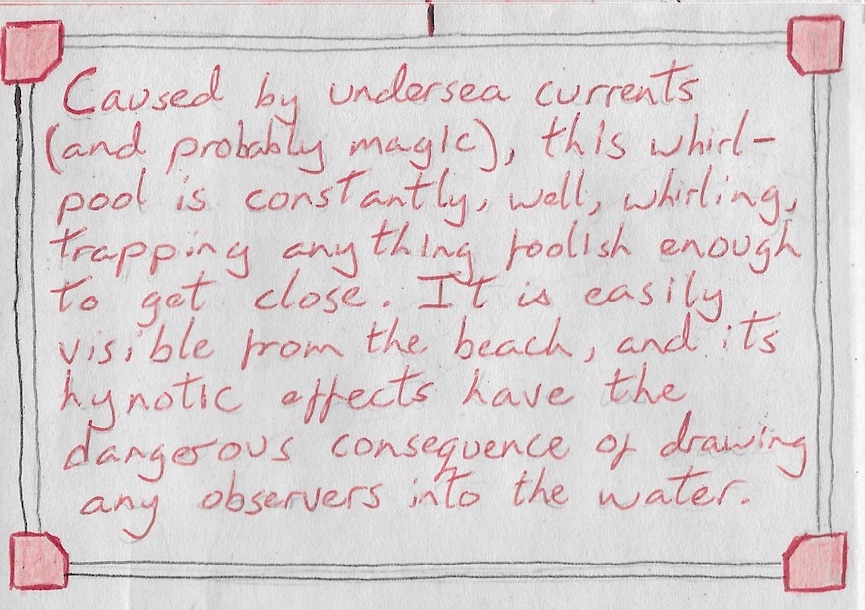 Caused by undersea currents
(and probably magic), this whirl-
pool is constantly, well, whirling,
trapping anything foolish enough
to get close. It is easily
visible from the beach, and its
hynotic effects have the
dangerous consequence of drawing
any observers into the water.